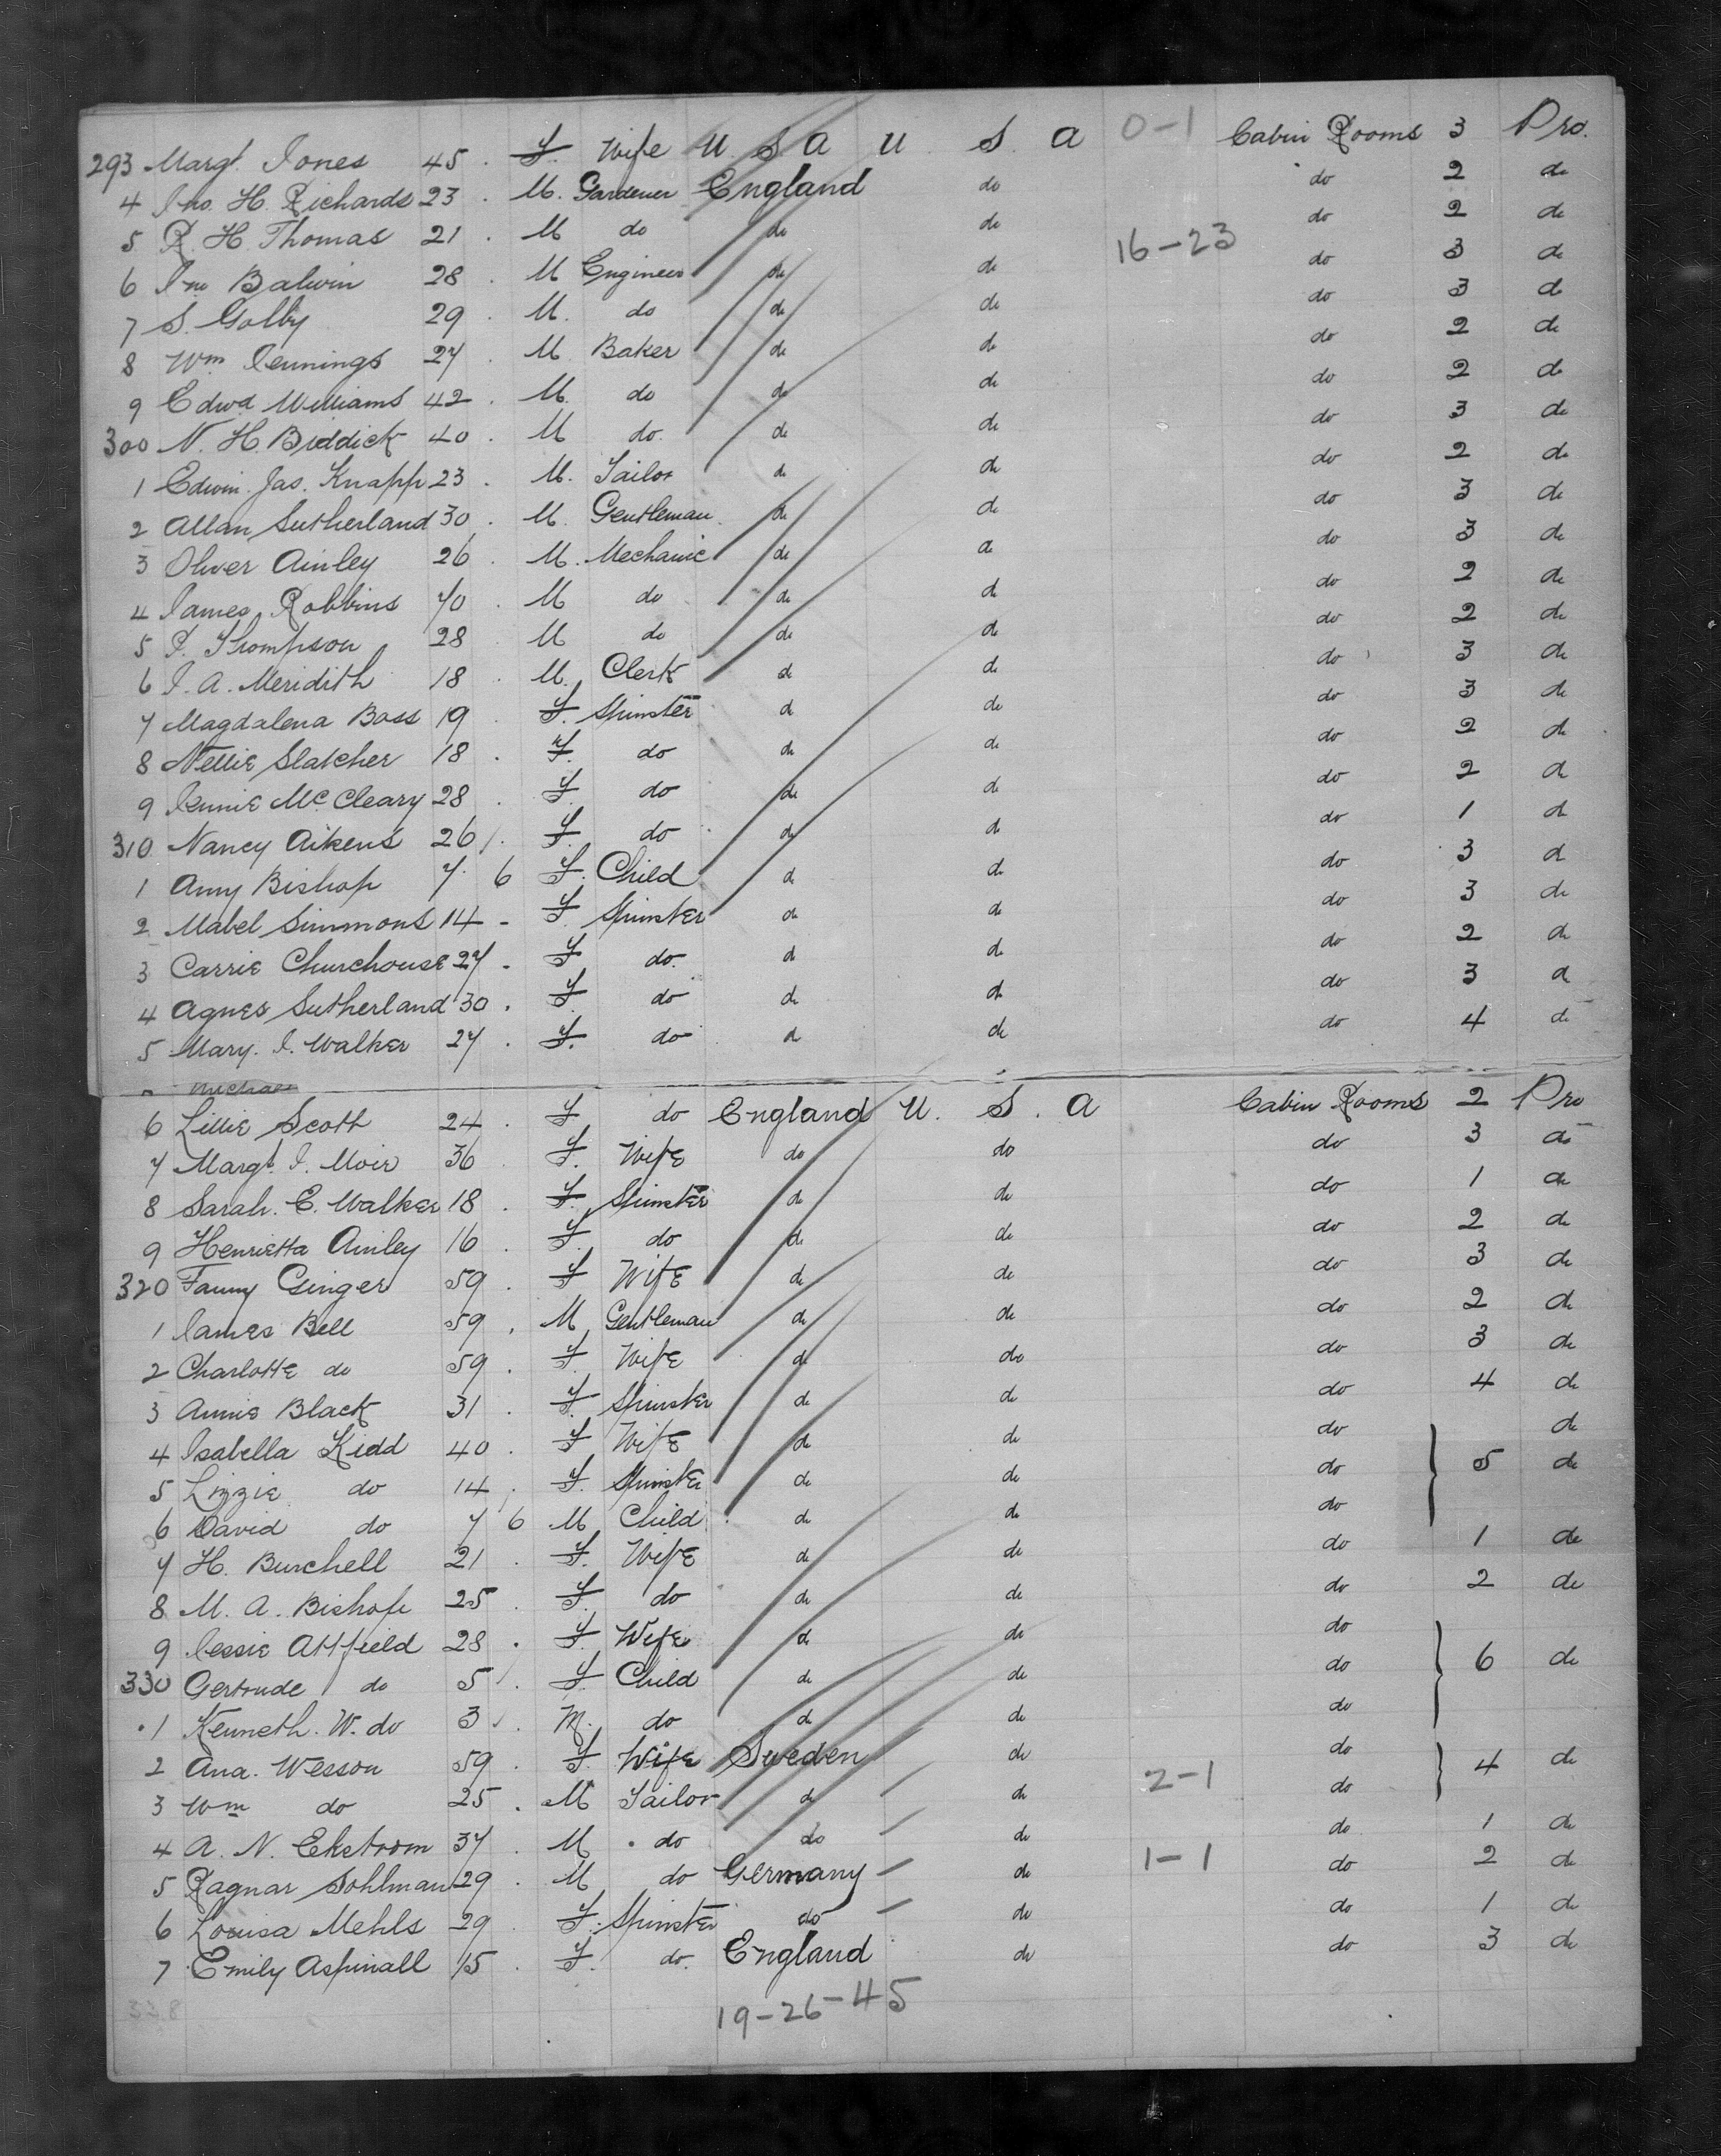 293 Margt. Jones 45 . F. Wife U S A U. S. A 0-1 Cabin Rooms 3 Pro.
4 Jno. H. Richards 23 . M. Gardener England do do 2 do
5 R. H. Thomas 21 . M do do do do 2 do
6 Jno Balwin 28 . M Engineer do do 16-23 do 3 do
7 S. Golby 29 . M. do do do do 3 do
8 Wm Jennings 27 . M Baker do do do 2 do
9 Edwd Williams 42 . M. do do do do 2 do
300 N. H. Biddick 40 . M do. do do do 3 do
1 Edwin. Jas. Knapp 23 . M. Tailor do do do 2 do
2 Allan Sutherland 30 . M. Gentleman do do do 3 do
3 Oliver Ainley 26 . M. Mechanic do do do 3 do
4 James Robbins 40 . M do do do do 2 do
5 J. Thompson 28 M do do do do 2 do
6 J. A. Meridith 18 . M. Clerk do do do 3 do
7 Magdalena Boss 19 F. Spinster do do do 3 do
8 Nellie Slatcher 18 . F. do do do do 2 do
9 Jennie McCleary 28 . F. do do do do 2 do
310 Nancy Aikens 26 . F. do do do do 1 do
1 Amy Bishop 7. 6 F. Child do do do 3 do
2 Mabel Simmons 14 - F. Spinster do do do 3 do
3 Carrie Churchouse 27 - F do. do do do 2 do
4 Agnes Sutherland 30 . F. do do do do 3 do
5 Mary. J. Walker 27 . F. do do do do 4 do
6 Lillie Scott 24 . F do England U. S. A Cabin Rooms 2 Pro
7 Margt. J. Moir 36 F. Wife do do do 3 do
8 Sarah. E. Walker 18 . F. Spinster do do do 1 do
9 Henrietta Ainley 16 . F. do do do do 2 do
320 Fanny Ginger 59 . F Wife do do do 3 do
1 James Bell 59 . M Gentleman do do do 2 do
2 Charlotte do 59 . F. Wife do do do 3 do
3 Annie Black 31 . F. Spinster do do do 4 do
4 Isabella Kidd 40 . F Wife do do do do
5 Lizzie do 14 . F. Spinster do do do 5 do
6 David do 7 6 M Child do do do
7 H. Burchell 21 . F. Wife do do do 1 do
8 M. A. Bishop 25 . F. do do do do 2 do
9 Jessie Attfield 28 . F. Wife do do do
330 Gertrude do 5 . F. Child do do do 6 do
1 Kenneth. W. do 3 . M. do do do do
2 Ana. Wesson 59 . F. Wife Sweden do do 4 do
3 Wm do 25 . M Tailor do do 2-1 do
4 A. N. Ekstrom 37 . M do do do do 1 do
5 Ragnar Sohlman 29 . M do Germany do 1-1 do 2 do
6 Louisa Mehls 29 . F. Spinster do do do 1 do
7 Emily Aspinall 15 . F. do. England do do 3 do
338
19-26-45